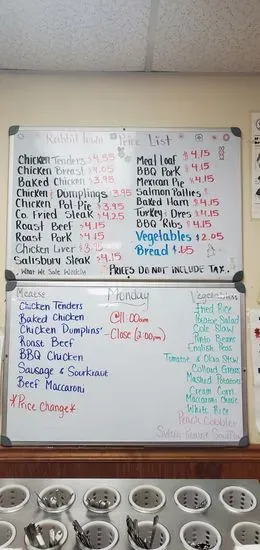 Rabbit Town Price List
Chicken Tenders $4.55
Chicken Breast $4.05
Baked Chicken $3.95
Chicken & Dumplings $3.95
Chicken Pot Pie $3.95
Co. Fried Steak $4.25
Roast Beef $4.15
Roast Pork $4.15
Chicken Liver $3.15
Salisbury Steak $4.15
What We Sale Weekly
Meat loaf $4.15
BBQ Pork $4.15
Mexican Pie $4.15
Salmon Patties $
Baked Ham $4.15
Turkey & Dres $4.15
BBQ Ribs $4.15
Vegetables $2.05
Bread $.65
PRICES DO NOT INCLUDE TAX.
Meats
Chicken Tenders
Baked Chicken
Chicken Dumplins'
Roast Beef
BBQ Chicken
Sausage & Sourkraut
Beef Macaroni
*Price Change*
Monday
@11:00am
-Close (2:00pm)
Vegetables
Fried Rice
Potatoe Salad
Cole Slaw
Pinto Beans
English Peas
Tomatoe & Okra Stew
Collard Greens
Mashed Potatoes
Cream Corn
Macaroni Cheese
White Rice
Peach Cobbler